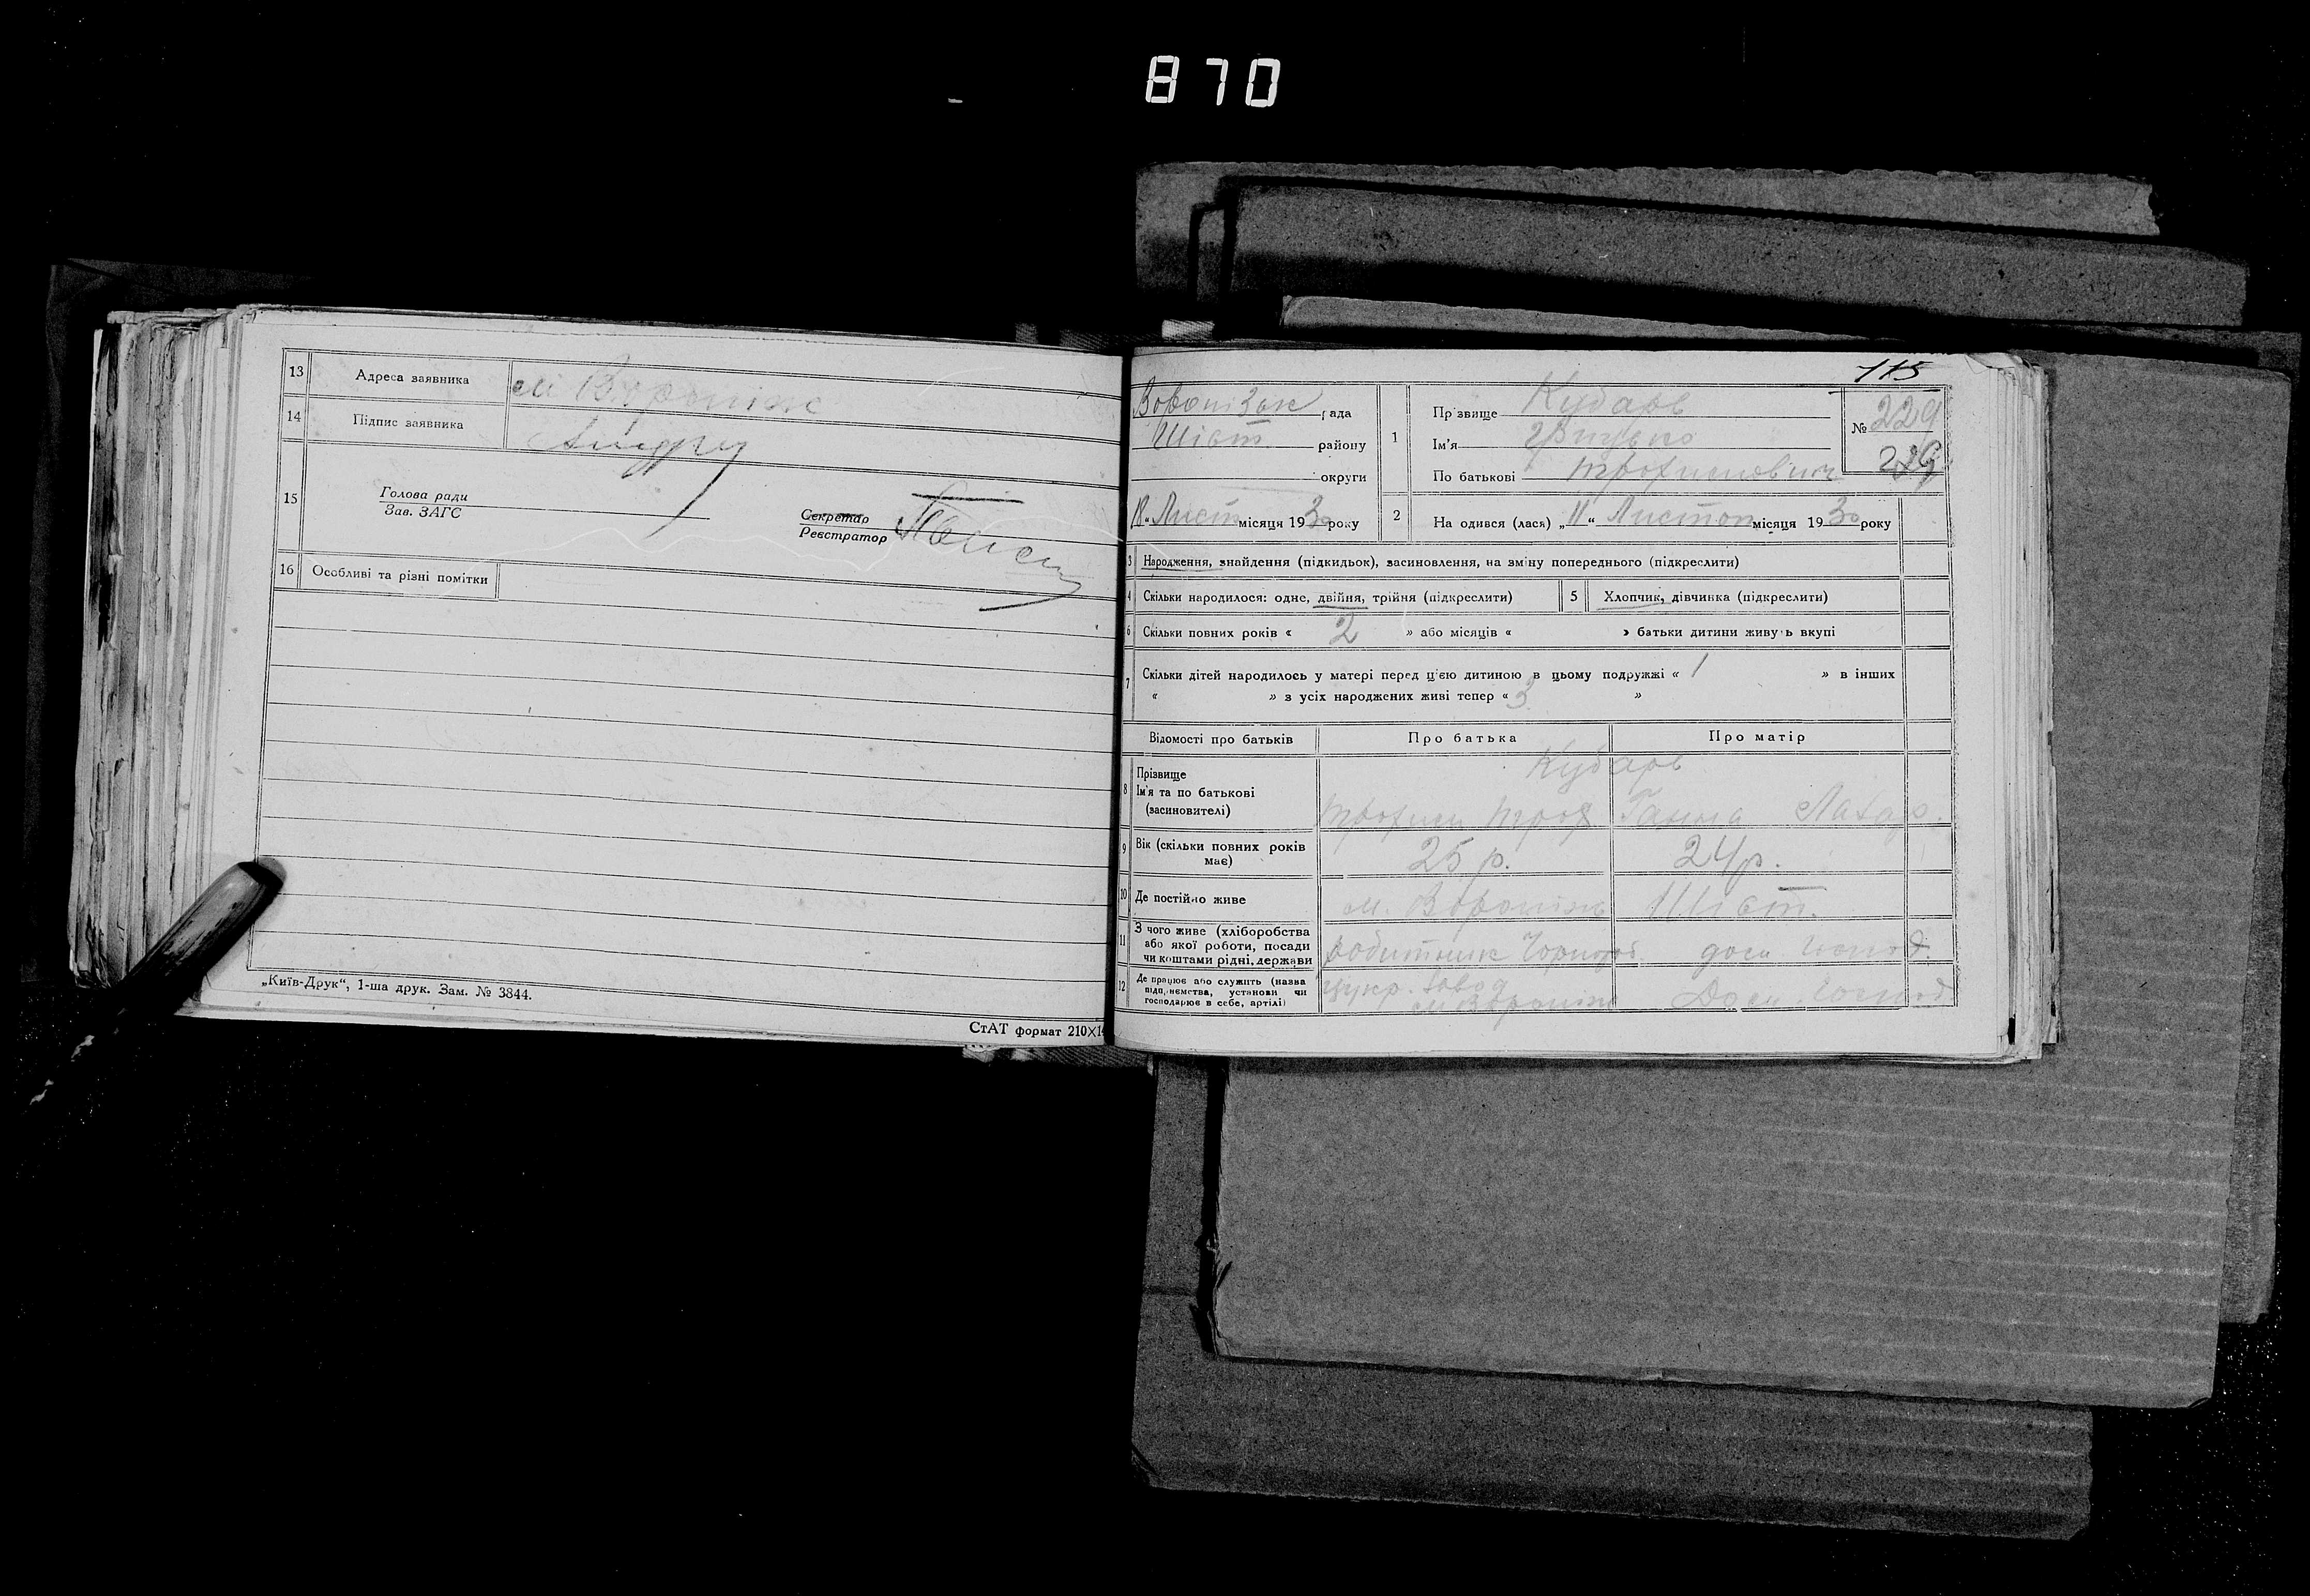 870
13 Адреса заявника м Вороніж
14 Підпис заявника
15 Голова ради
Зав. ЗАГС
Секретар
Реєстратор
16 Особливі та різні помітки
„Київ-Друк“, 1-ша друк. Зам. № 3844.
СтАТ формат 210×14
115
рада
Шіст району
округи
„ “ Лист місяця 1930 року
1 Прізвище Кубарь
Ім'я Грицько
По батькові Трохимович
№ 229
229
2 Народився (лася) „11“ Листоп місяця 1930 року
3 Народження, знайдення (підкидьок), засиновлення, на зміну попереднього (підкреслити)
4 Скільки народилося: одне, двійня, трійня (підкреслити) 5 Хлопчик, дівчинка (підкреслити)
6 Скільки повних років « 2 » або місяців « » батьки дитини живуть вкупі
7 Скільки дітей народилось у матері перед цією дитиною в цьому подружжі « 1 » в інших
« » з усіх народжених живі тепер « 3 »
Відомості про батьків Про батька Про матір
8 Прізвище
Ім'я та по батькові
(засиновителі)
Кубарь
Трохим Троф Ганна
9 Вік (скільки повних років має) 25 р. 24 р.
10 Де постійно живе м. Вороніж Шіст.
11 З чого живе (хліборобства
або якої роботи, посади
чи коштами рідні, держави
робитник дом господ.
12 Де працює або служить (назва
підприємства, установи чи
господарює в себе, артілі)
цукр. завод
м Вороніж Дом. господ